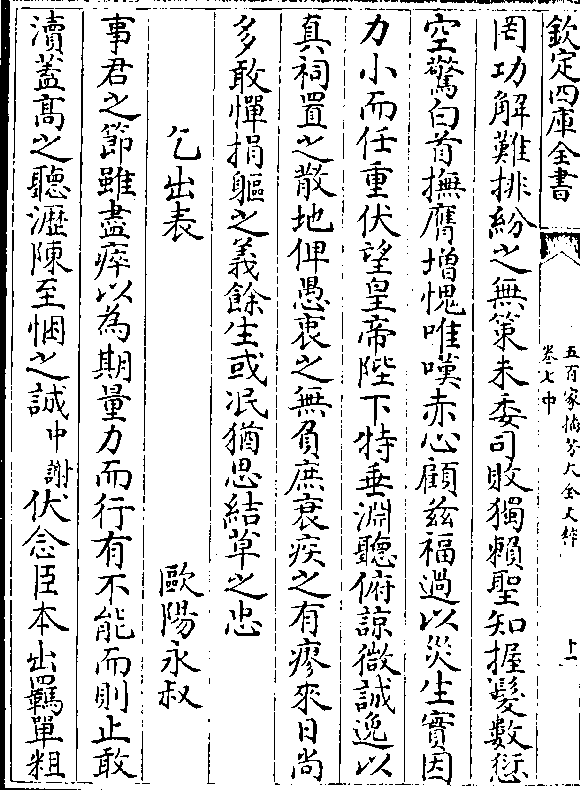 欽定四庫全書
五百家播芳大全文粹
卷七中
十一
罔功解難排紛之無策未委司敗獨賴聖知握髮數愆
空驚白首撫膺增愧唯嘆赤心顧兹福過以災生實因
力小而任重伏望皇帝陛下特垂淵聽俯諒微誠逸以
真祠置之散地俾愚衷之無負庶衰疾之有瘳來日尚
多敢憚捐軀之義餘生或泯猶思結草之忠
乞出表 歐陽永叔
事君之節雖盡瘁以為期量力而行有不能而則止敢
瀆蓋髙之聽瀝陳至悃之誠中謝伏念臣本出羈單粗